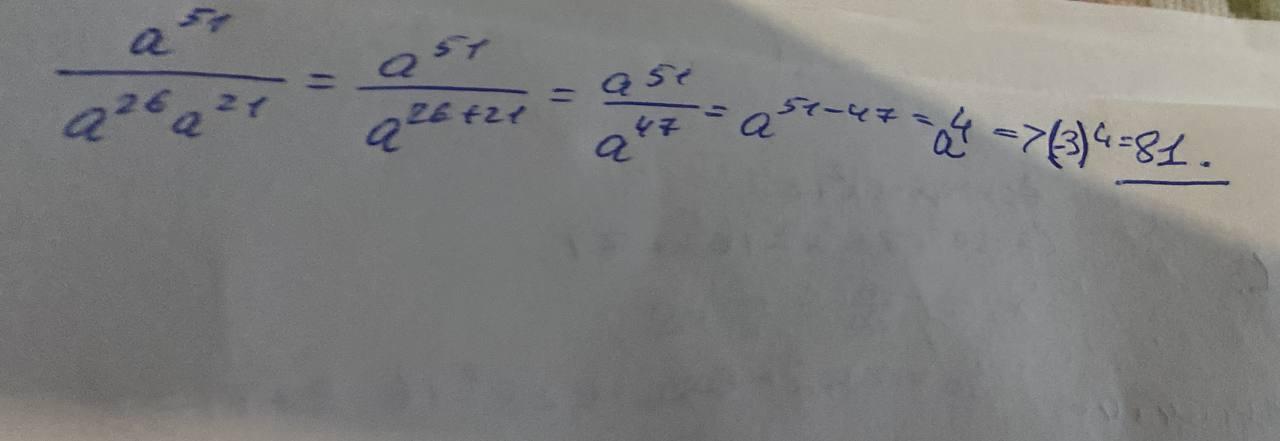 a^51 / a^26 a^21 = a^51 / a^26+21 = a^51 / a^47 = a^51-47 = a^4 => (-3)^4 = 81.